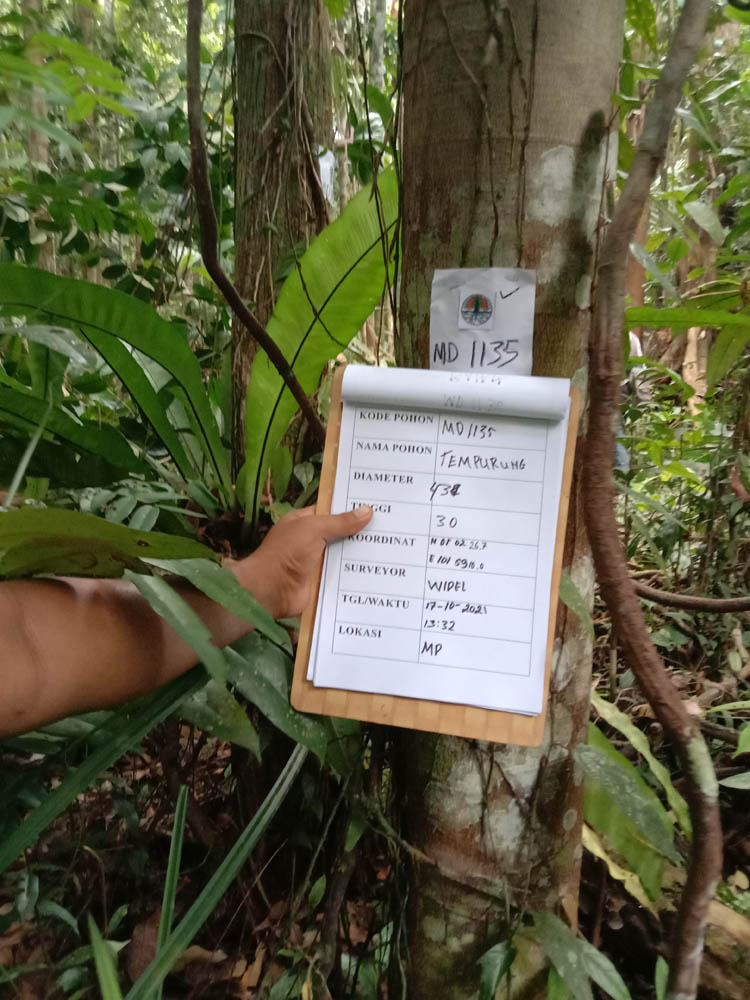 MD 1135
KODE POHON MD1135
NAMA POHON TEMPURUNG
DIAMETER
TINGGI 30
KOORDINAT N 01 02 26.7
E 101 5910.0
SURVEYOR WIDEL
TGL/WAKTU 17-10-2021
13:32
LOKASI MD